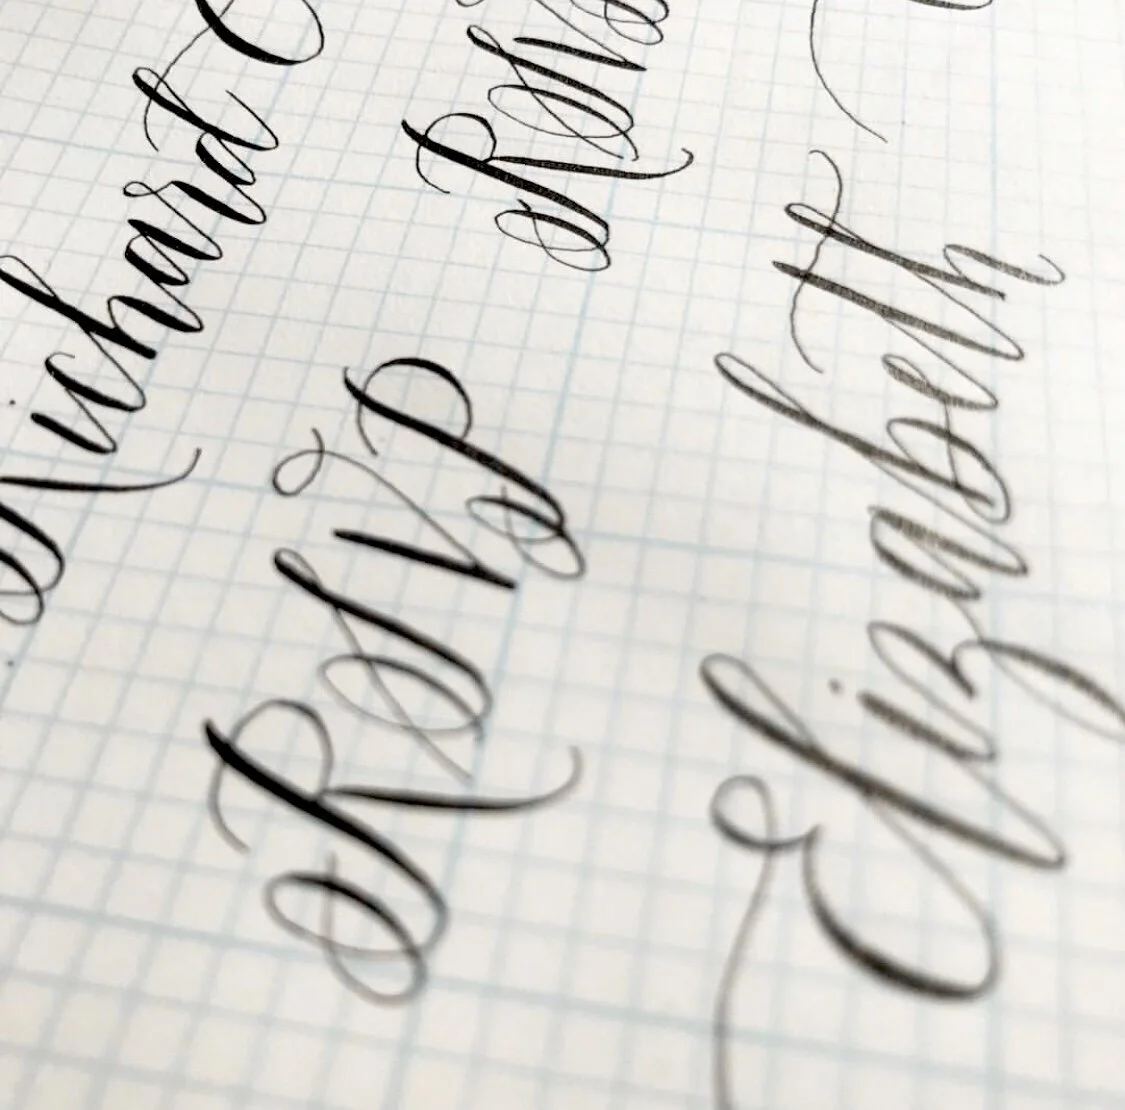 Richard
RSV
RSVP
Elizabeth